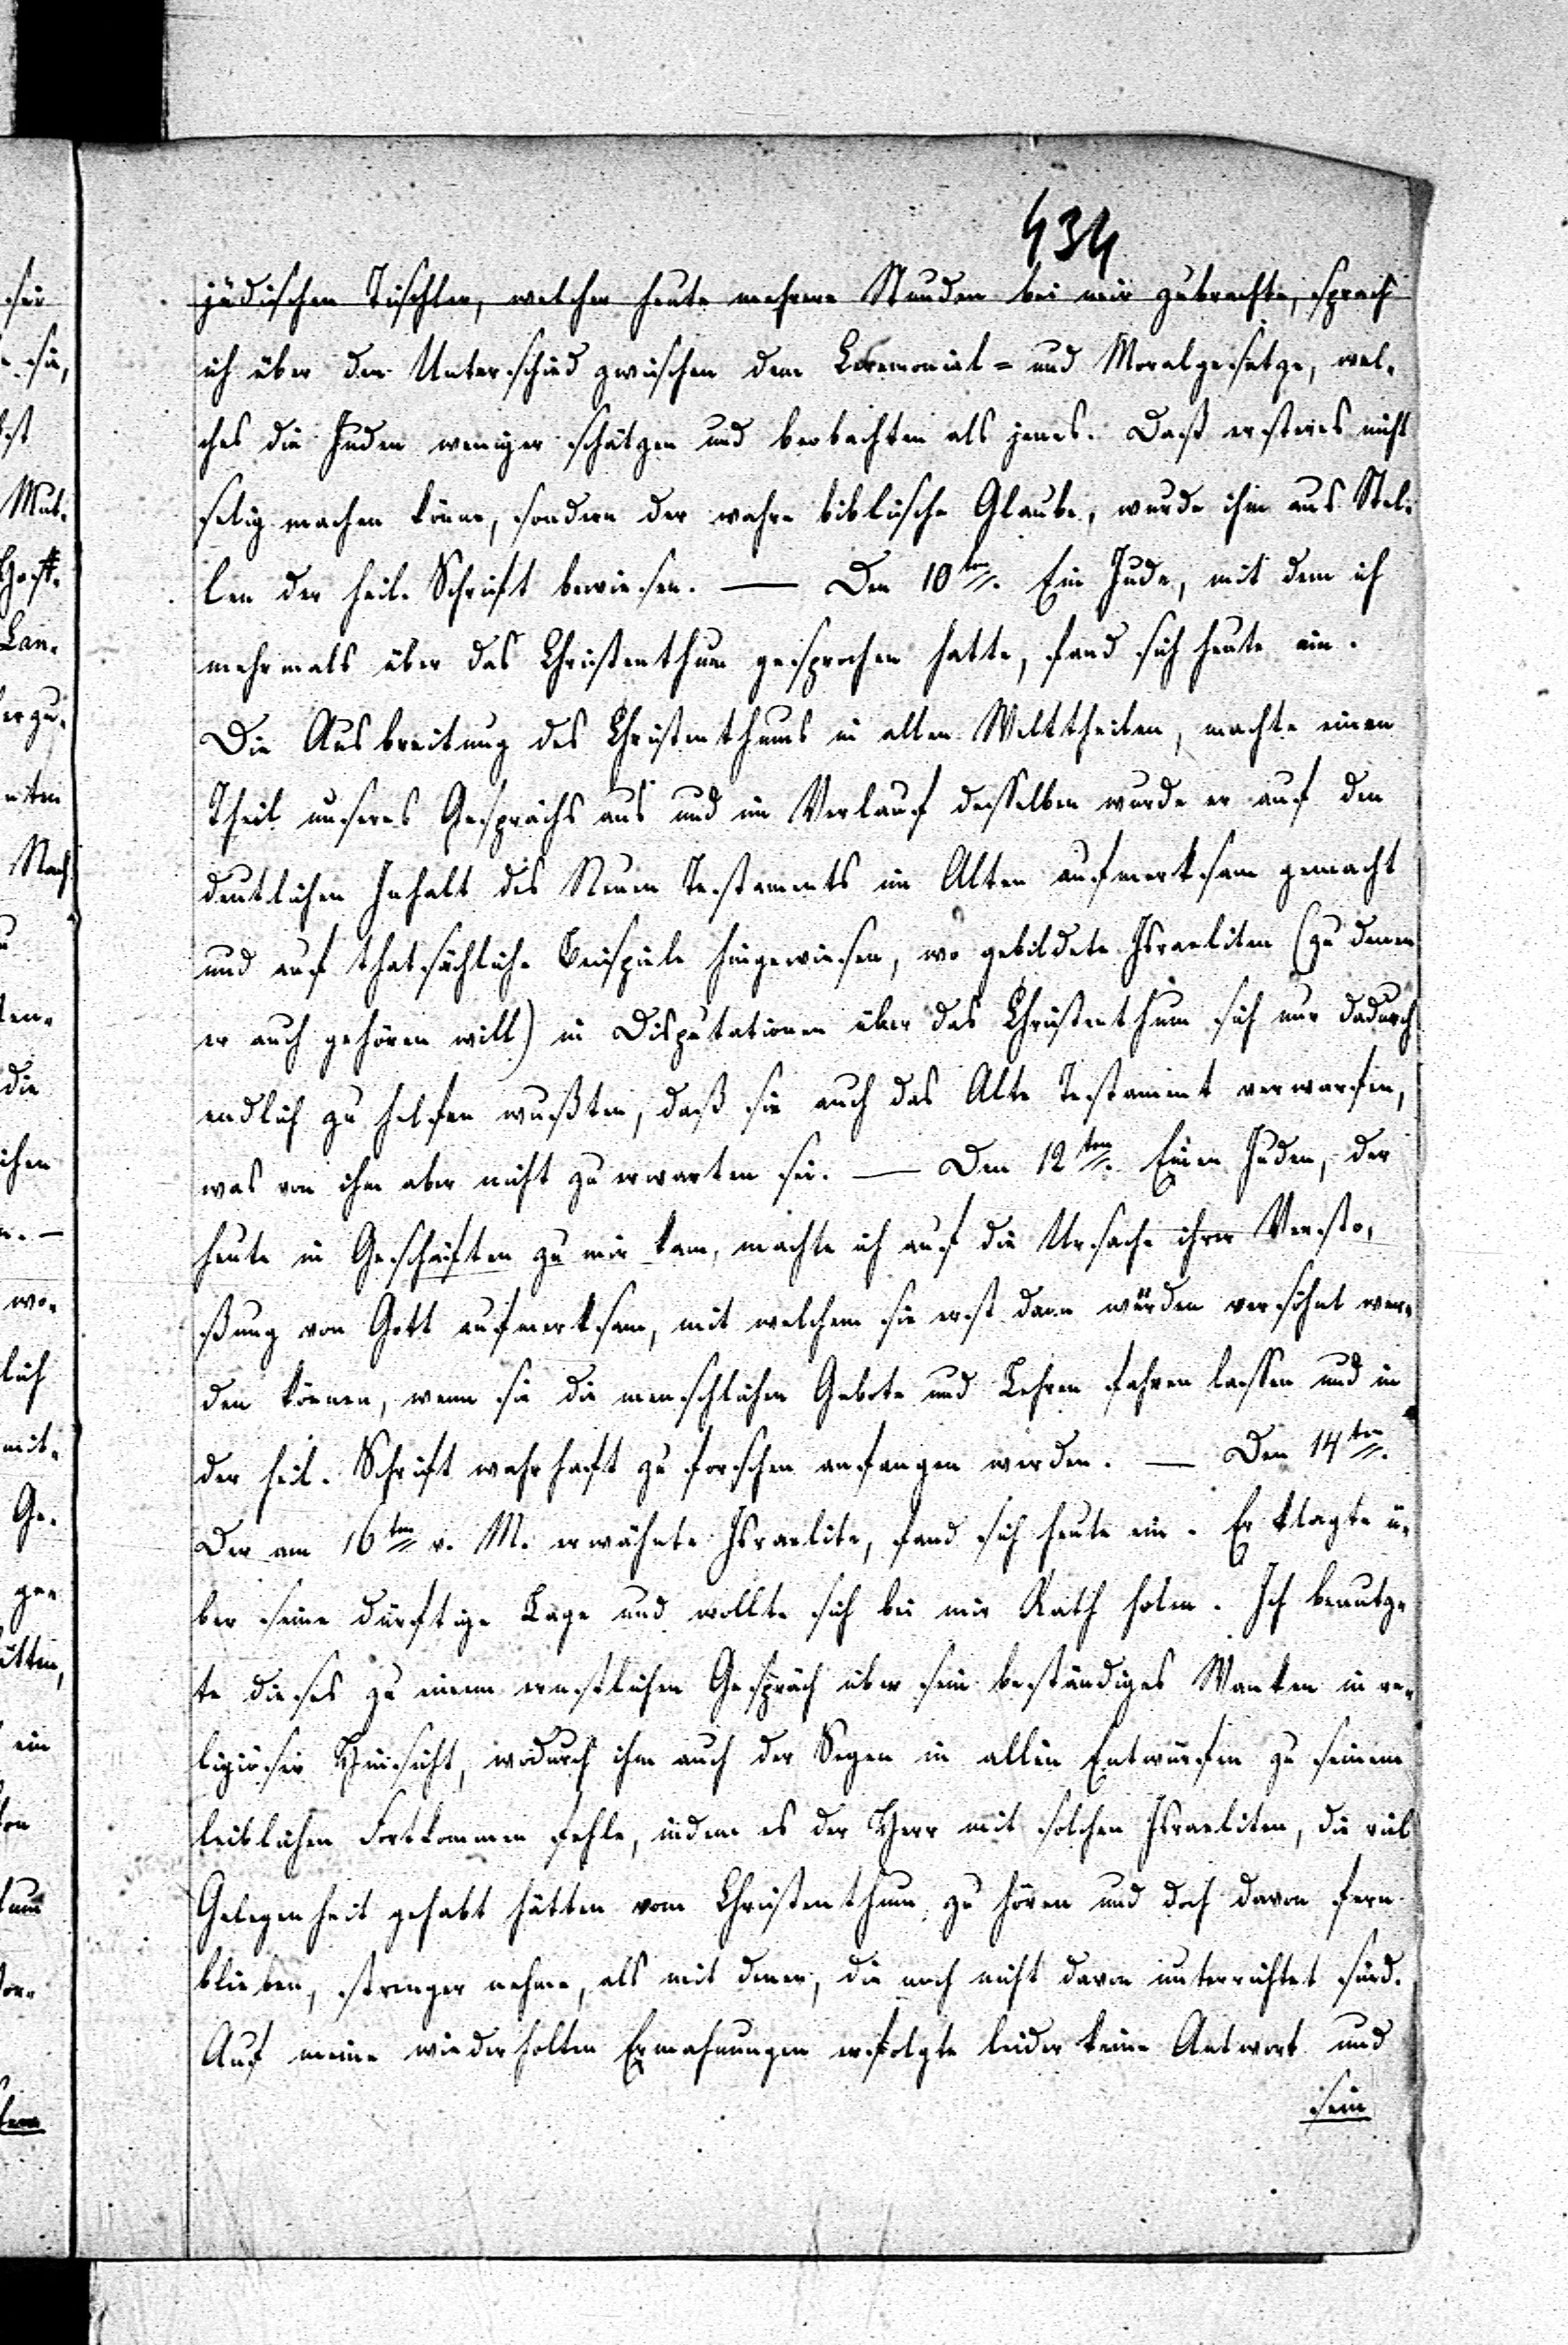 434
jüdischen Tischler, welcher heute mehrere Stunden bei mir zubrachte, sprach
ich über den Unterschied zwischen dem Ceremonial- und Moralgesetze, wel-
ches die Juden weniger schätzen und beobachten als jenes. Daß ersteres nicht
selig machen könne, sondern der wahre biblische Glaube, wurde ihm aus Stel-
len der heil. Schrift bewiesen. — Den 10ten. Ein Jude, mit dem ich
mehrmals über das Christenthum gesprochen hatte, fand sich heute ein.
Die Ausbreitung des Christenthums in allen Welttheilen, machte einen
Theil unseres Gesprächs aus und im Verlauf desselben wurde er auf den
deutlichen Inhalt des Neuen Testaments im Alten aufmerksam gemacht
und auf thatsächliche Beispiele hingewiesen, wo gebildete Israeliten (zu denen
er auch gehören will) in Disputationen über das Christenthum sich nur dadurch
endlich zu helfen wußten, daß sie auch das Alte Testament verwarfen,
was von ihm aber nicht zu erwarten sei. — Den 12ten. Einen Juden, der
heute in Geschäften zu mir kam, machte ich auf die Ursache ihrer Versto-
ßung von Gott aufmerksam, mit welchem sie erst dann würden versöhnt wer-
den können, wenn sie die menschlichen Gebote und Lehren fahren lassen und in
der heil. Schrift wahrhaft zu forschen anfangen werden. — Den 14ten.
Der am 16ten v. M. erwähnte Israelite, fand sich heute ein. Er klagte ü-
ber seine dürftige Lage und wollte sich bei mir Rath holen. Ich benutz-
te dieses zu einem ernstlichen Gespräch über sein beständiges Wanken in re-
ligiöser Hinsicht, wodurch ihm auch der Segen in allen Entwürfen zu seinem
leiblichen Fortkommen fehle, indem es der Herr mit solchen Israeliten, die viel
Gelegenheit gehabt hätten vom Christenthum zu hören und doch davon fern
blieben, strenger nehme, als mit denen, die noch nicht davon unterrichtet sind.
Auf meine wiederholten Ermahnungen erfolgte leider keine Antwort und
sein